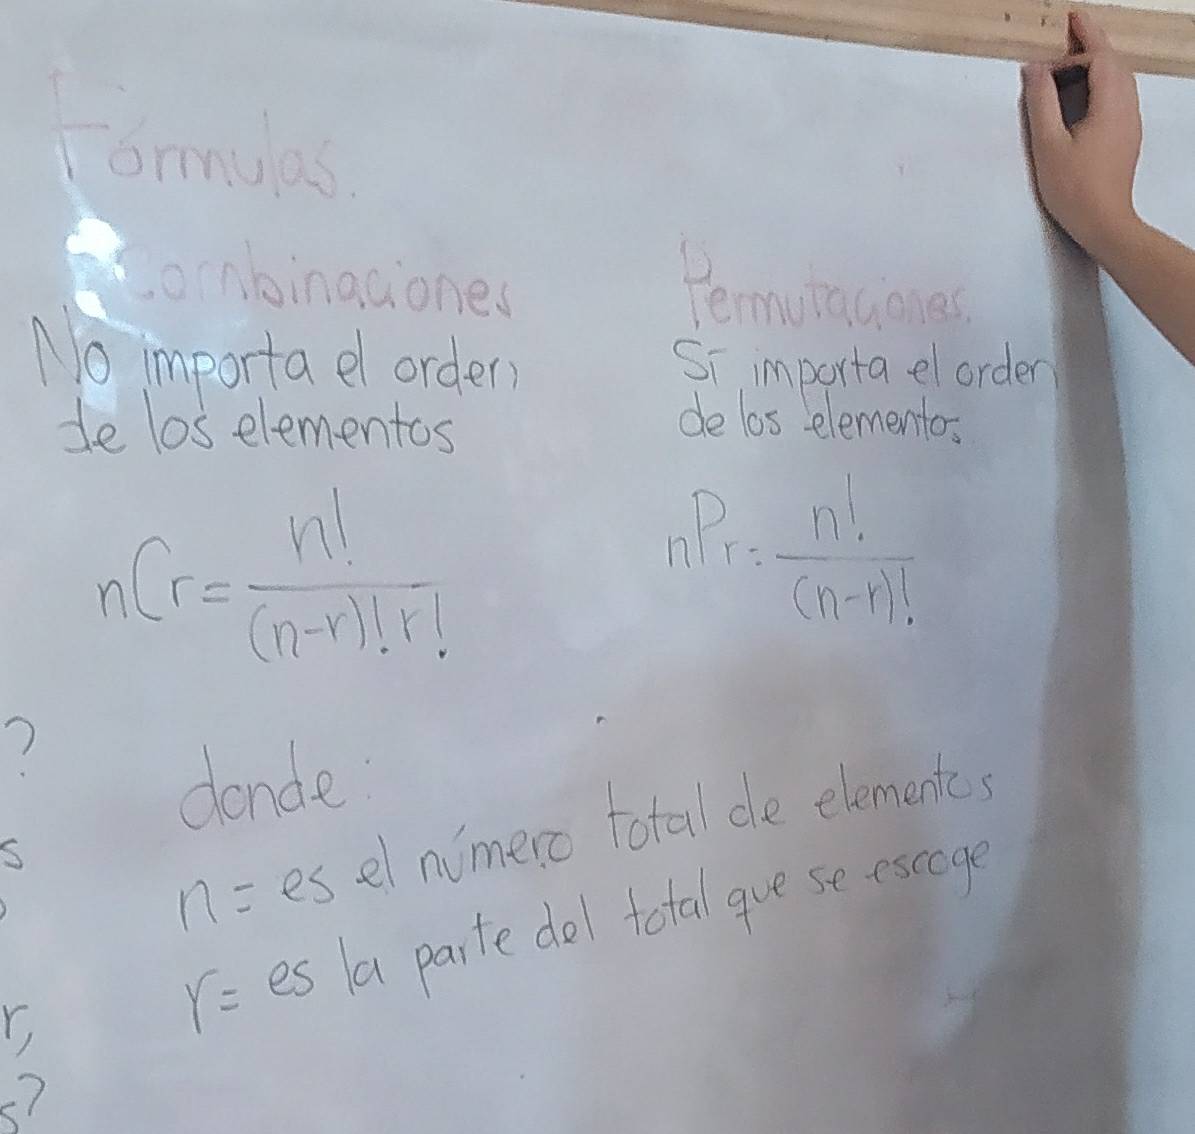 Fórmulas.
Combinaciones
No importa el orden
de los elementos
nCr = n! / (n-r)! r!
Permutaciones.
Sí importa el orden
de los elementos
nPr = n! / (n-r)!
donde:
n = es el número total de elementos
r = es la parte del total que se escoge
?
s
r,
s?